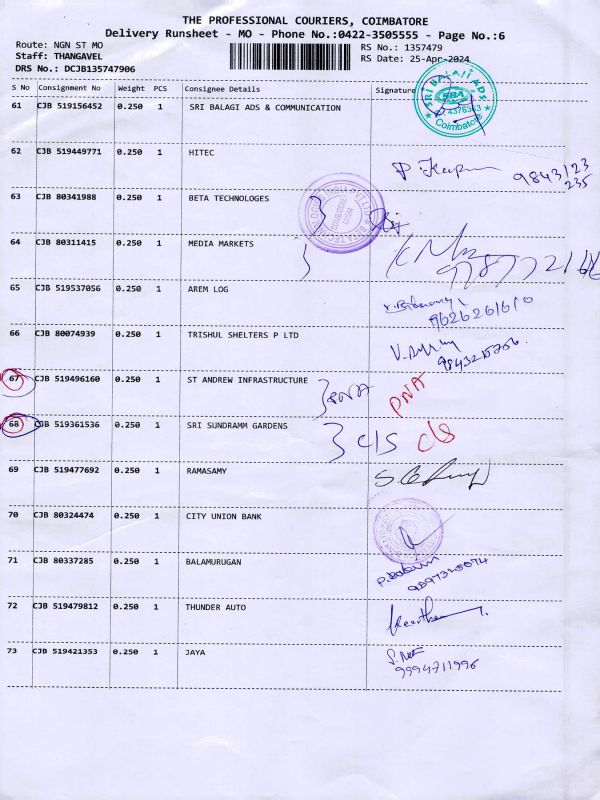 THE PROFESSIONAL COURIERS, COIMBATORE
Delivery Runsheet - MO - Phone No.:0422-3505555 - Page No.:6
Route: NGN ST MO
RS No.: 1357479
Staff: THANGAVEL
RS Date: 25-Apr-2024
DRS No.: DCJB135747906
S No Consignment No Weight PCS Consignee Details Signature
61 CJB 519156452 0.250 1 SRI BALAGI ADS & COMMUNICATION
SRI BALAJI ADS
SBA
Coimbatore
62 CJB 519449771 0.250 1 HITEC
9843123
235
63 CJB 80341988 0.250 1 BETA TECHNOLOGES
64 CJB 80311415 0.250 1 MEDIA MARKETS
65 CJB 519537056 0.250 1 AREM LOG
9626261610
66 CJB 80074939 0.250 1 TRISHUL SHELTERS P LTD
67 CJB 519496160 0.250 1 ST ANDREW INFRASTRUCTURE PNA PNA
68 CJB 519361536 0.250 1 SRI SUNDRAMM GARDENS C/S C/S
69 CJB 519477692 0.250 1 RAMASAMY
70 CJB 80324474 0.250 1 CITY UNION BANK
71 CJB 80337285 0.250 1 BALAMURUGAN
72 CJB 519479812 0.250 1 THUNDER AUTO
73 CJB 519421353 0.250 1 JAYA
9994711996